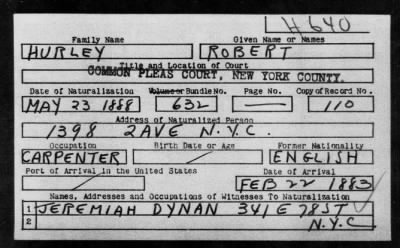 H640
Family Name Given Name or Names
HURLEY ROBERT
Title and Location of Court
COMMON PLEAS COURT, NEW YORK COUNTY.
Date of Naturalization Volume or Bundle No. Page No. Copy of Record No.
MAY 23 1888 632 — 110
Address of Naturalized Person
1398 2AVE N.Y.C.
Occupation Birth Date or Age Former Nationality
CARPENTER ENGLISH
Port of Arrival in the United States Date of Arrival
FEB 22 1883
Names, Addresses and Occupations of Witnesses To Naturalization
1 JEREMIAH DYNAN 341 E 78ST
2 N.Y.C